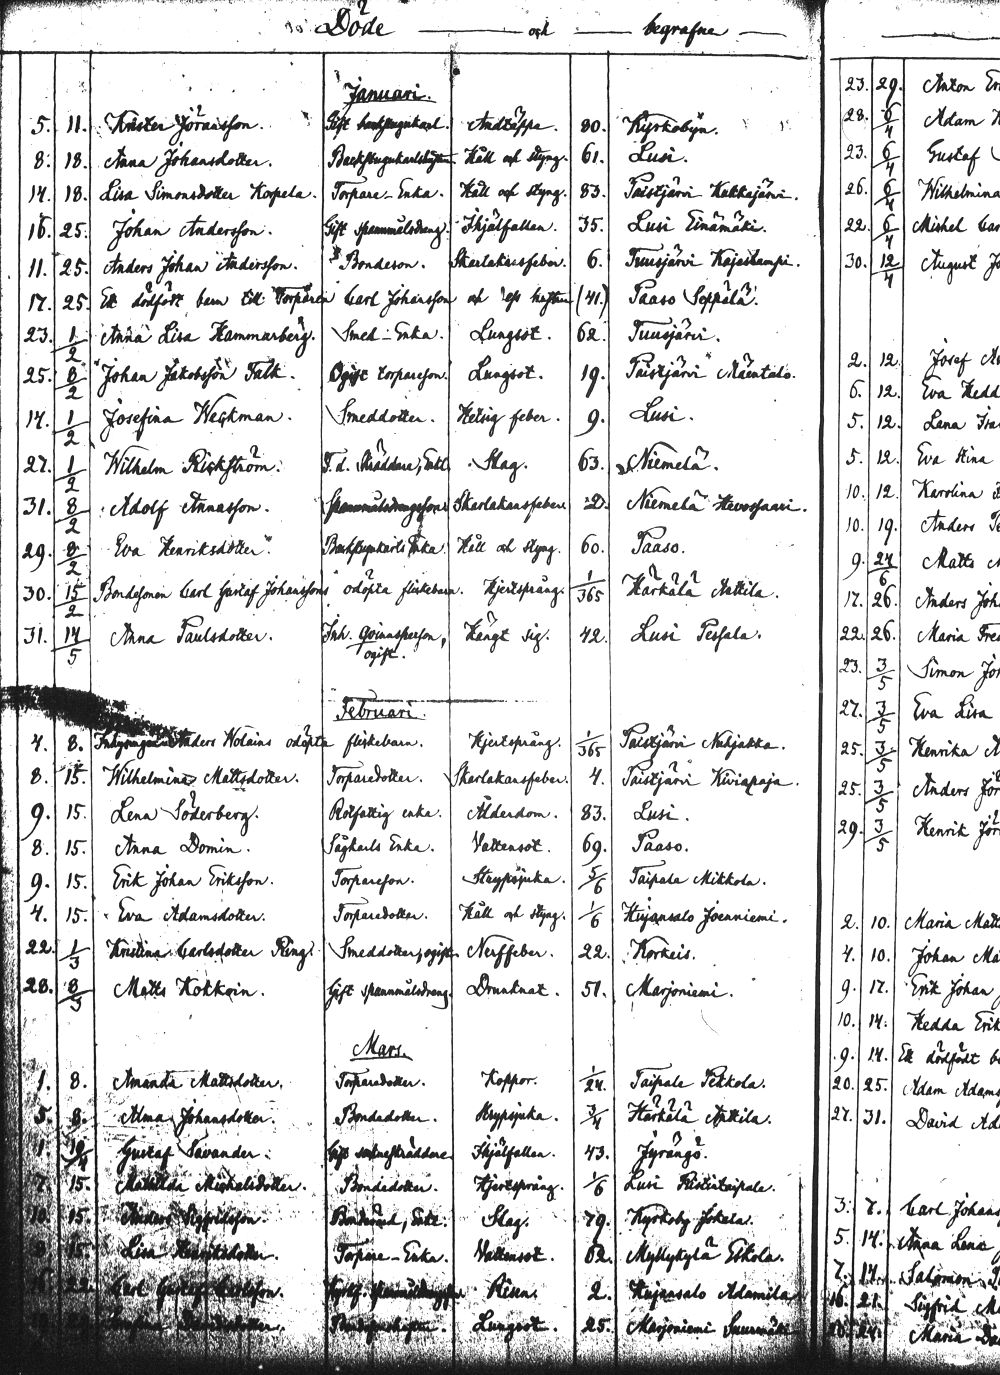 Döde och begrafne
Januari.
5. 11. Krister Jöransson. Gift backstugukarl. Andtäppa. 80. Kyrkobyn.
8. 18. Anna Johansdotter. Backstugukarlshustru. Håll och styng. 61. Lusi.
14. 18. Lisa Simonsdotter Korpela. Torpare-Enka. Håll och styng. 83. Paistjärvi Kukkajärvi.
16. 25. Johan Andersson. Gift spannmålsdreng. Ihjälfallen. 35. Lusi Einämäki.
11. 25. Anders Johan Andersson. Bondeson. Skarlakansfeber. 6. Tuusjärvi Kajaslampi.
17. 25. Ett dödfödt barn till Torparen Carl Johansson och dess hustru (41.) Paaso Seppälä.
23. 1/2 Anna Lisa Hammarberg. Smed-Enka. Lungsot. 62. Tuusjärvi.
25. 8/2 Johan Jakobsson Falk. Ogift torpareson. Lungsot. 19. Paistjärvi Mäentalo.
14. 1/2 Josefina Weckman. Smeddotter. Hetsig feber. 9. Lusi.
27. 1/2 Wilhelm Rickström. F.d. Skräddare, Enkl. Slag. 63. Niemelä.
31. 8/2 Adolf Annasson. Skarlakansfeber. 2. Niemelä Hevossaari.
29. 8/2 Eva Henriksdotter. Backstukarls Enka. Håll och styng. 60. Paaso.
30. 15/2 Bondesonen Carl Gustaf Johanssons odöpta flickebarn. Hjertsprång. 1/365 Härkälä Anttila.
31. 14/5 Anna Paulsdotter. Inh. Qvinnsperson, ogift. Hängt sig. 42. Lusi Pessala.
Februari.
4. 8. Anders Nolains odöpta flickebarn. Hjertsprång. 1/365 Paistjärvi Nuhjakka.
8. 15. Wilhelmina Mattsdotter. Torparedotter. Skarlakansfeber. 4. Paistjärvi Kiviapaja.
9. 15. Lena Söderberg. Rotfattig enka. Ålderdom. 83. Lusi.
8. 15. Anna Domin. Sågkarls Enka. Vattensot. 69. Paaso.
9. 15. Erik Johan Eriksson. Torpareson. Strypsjuka. 5/6 Taipale Mikkola.
4. 15. Eva Adamsdotter. Torparedotter. Håll och styng. 1/6 Kujansalo Joenniemi.
22. 1/3 Kristina Carlsdotter Ring. Smeddotter, ogift. Nerffeber. 22. Korkeis.
28. 8/3 Matts Kokkoin. Gift spannmålsdreng. Drunknat. 51. Marjoniemi.
Mars.
1. 8. Amanda Mattsdotter. Torparedotter. Koppor. 1/24. Taipale Pekkola.
5. 8. Alma Johansdotter. Bondedotter. Strypsjuka. 3/4 Härkälä Anttila.
1. 19/4 Gustaf Savander. Ihjälfallen. 43. Jyrängö.
7. 15. Mathilda Michelsdotter. Bondedotter. Hjertsprång. 1/6 Lusi Ristitaipale.
10. 15. Anders Sigfridsson. Enkl. Slag. 79. Kyrkoby Jokela.
8. 15. Lisa Henriksdotter. Torpare-Enka. Vattensot. 62. Myllykylä Eskola.
16. 22. Carl Gustaf Carlsson. Risen. 2. Kujansalo Adamila.
Lungsot. 25. Marjoniemi Suurmäki.
23. 29. Anton
28. 6/4 Adam
23. 6/4 Gustaf
26. 6/4 Wilhelmina
22. 6/4 Michel
30. 12/4 August
2. 12. Josef
6. 12. Eva
5. 12. Lena
5. 12. Eva Stina
10. 12. Karolina
10. 19. Anders
9. 24/6 Matts
17. 26. Anders
22. 26. Maria
23. 3/5 Simon
27. 3/5 Eva Lisa
25. 3/5 Henrika
25. 3/5 Anders
29. 3/5 Henrik
2. 10. Maria
4. 10. Johan
9. 17. Erik Johan
10. 14. Hedda
9. 14. Ett dödfödt
20. 25. Adam
27. 31. David
3. 7. Carl
5. 14. Anna Lena
7. 14. Salomon
16. 21. Sigfrid
Maria